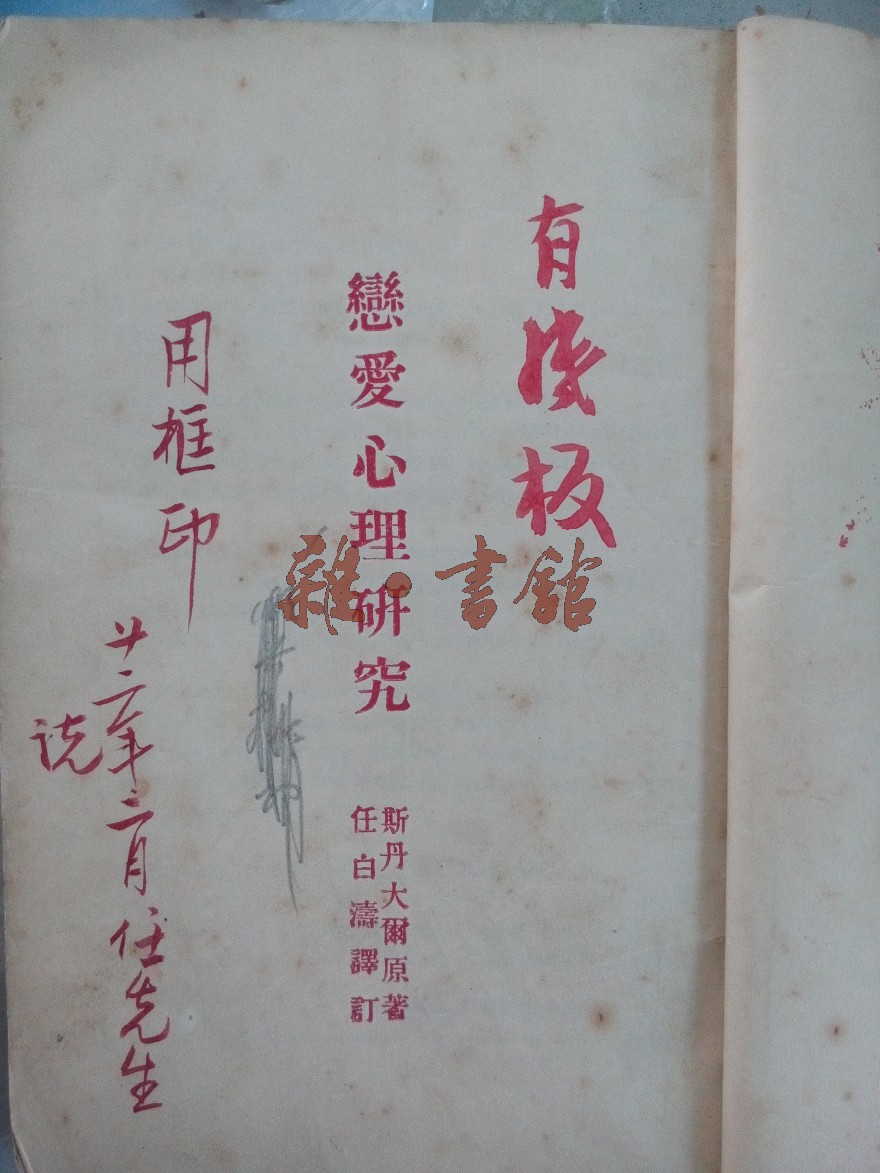 有淺板
戀愛心理研究
斯丹大爾原著
任白濤譯訂
用框印
廿二年二月任先生
说
雜·書館